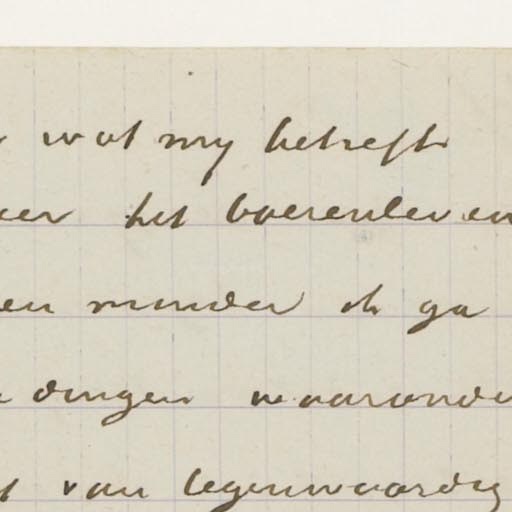 wat my betreft
het boerenleven
en minder ik ga
dingen waaronde
van tegenwoordig